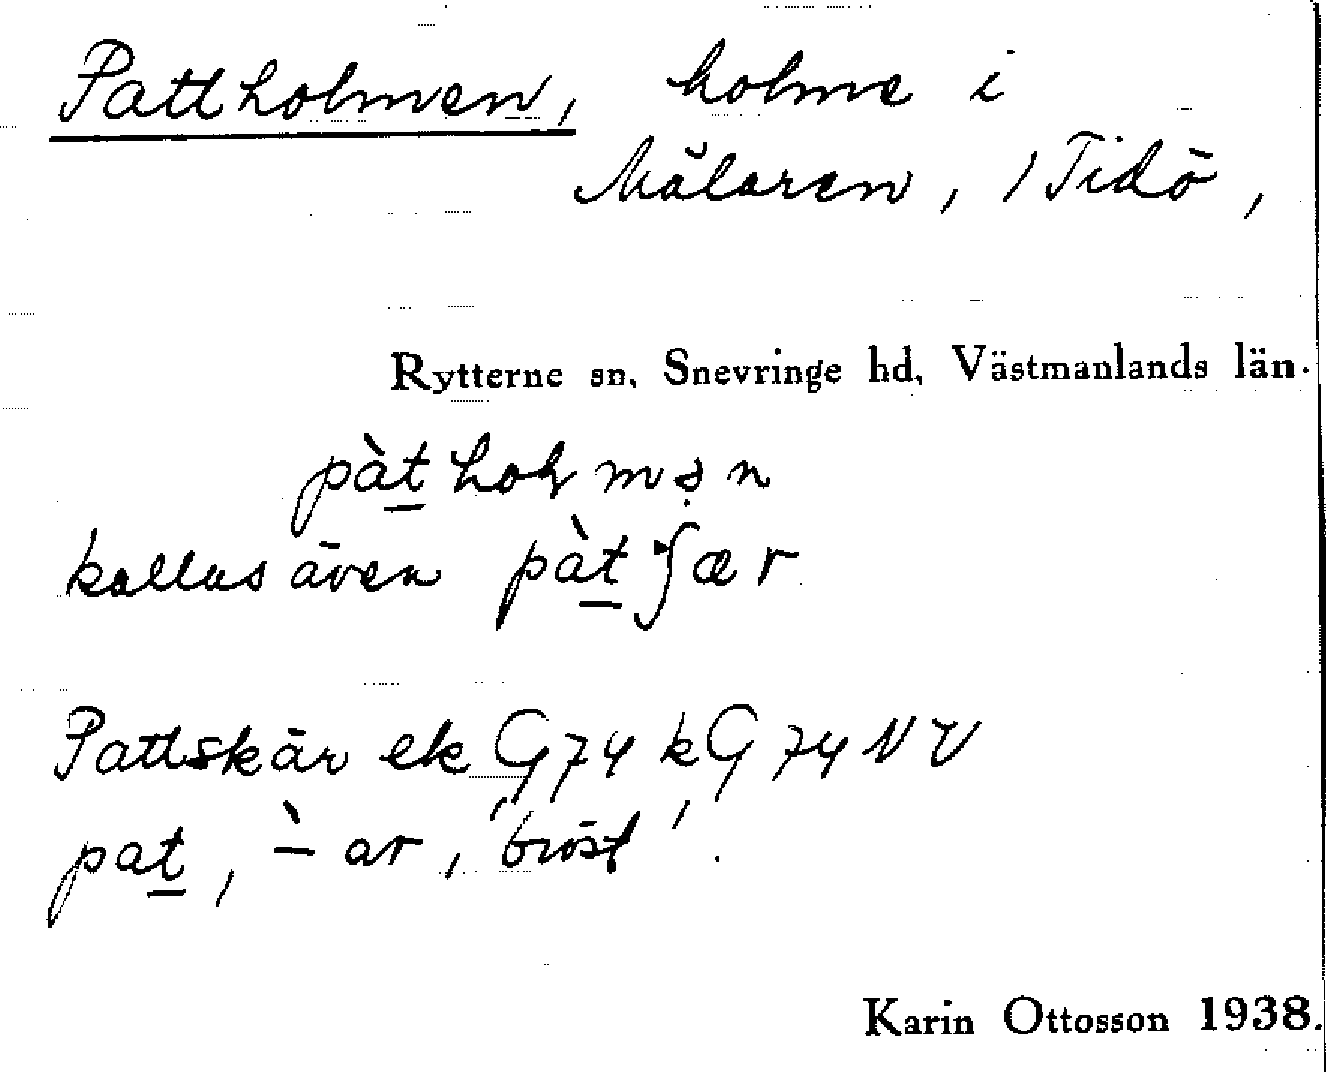 Pattholmen, holme i
Mälaren, / Tidö,
Rytterne sn, Snevringe hd, Västmanlands län.
pàt̲hoɭmən
kallas även pàt̲ʃær
Pattskär ek G74 kG74NV
pat̲, `- ar, 'bröst'.
Karin Ottosson 1938.